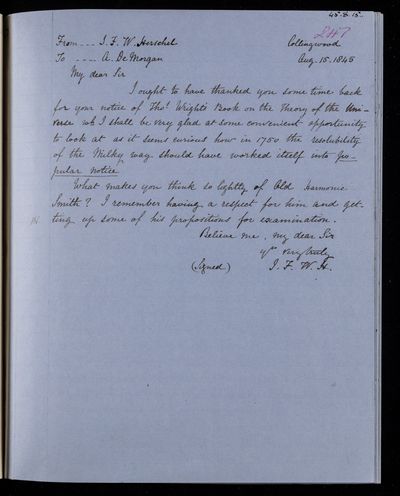 45-8-15
247
From --- J. F. W. Herschel Collingwood
To ---- A. De Morgan Aug. 15. 1845
My dear Sir
I ought to have thanked you some time back
for your notice of Thos. Wright's Book on the Theory of the Uni-
verse wh I shall be very glad at some convenient opportunity
to look at as it seems curious how in 1750 the resolubility
of the Milky way should have worked itself into po-
pular notice
What makes you think so lightly of Old Harmonic
Smith? I remember having a respect for him and get-
ting up some of his propositions for examination.
Believe me, my dear Sir
yrs very truly
(Signed) J. F. W. H.